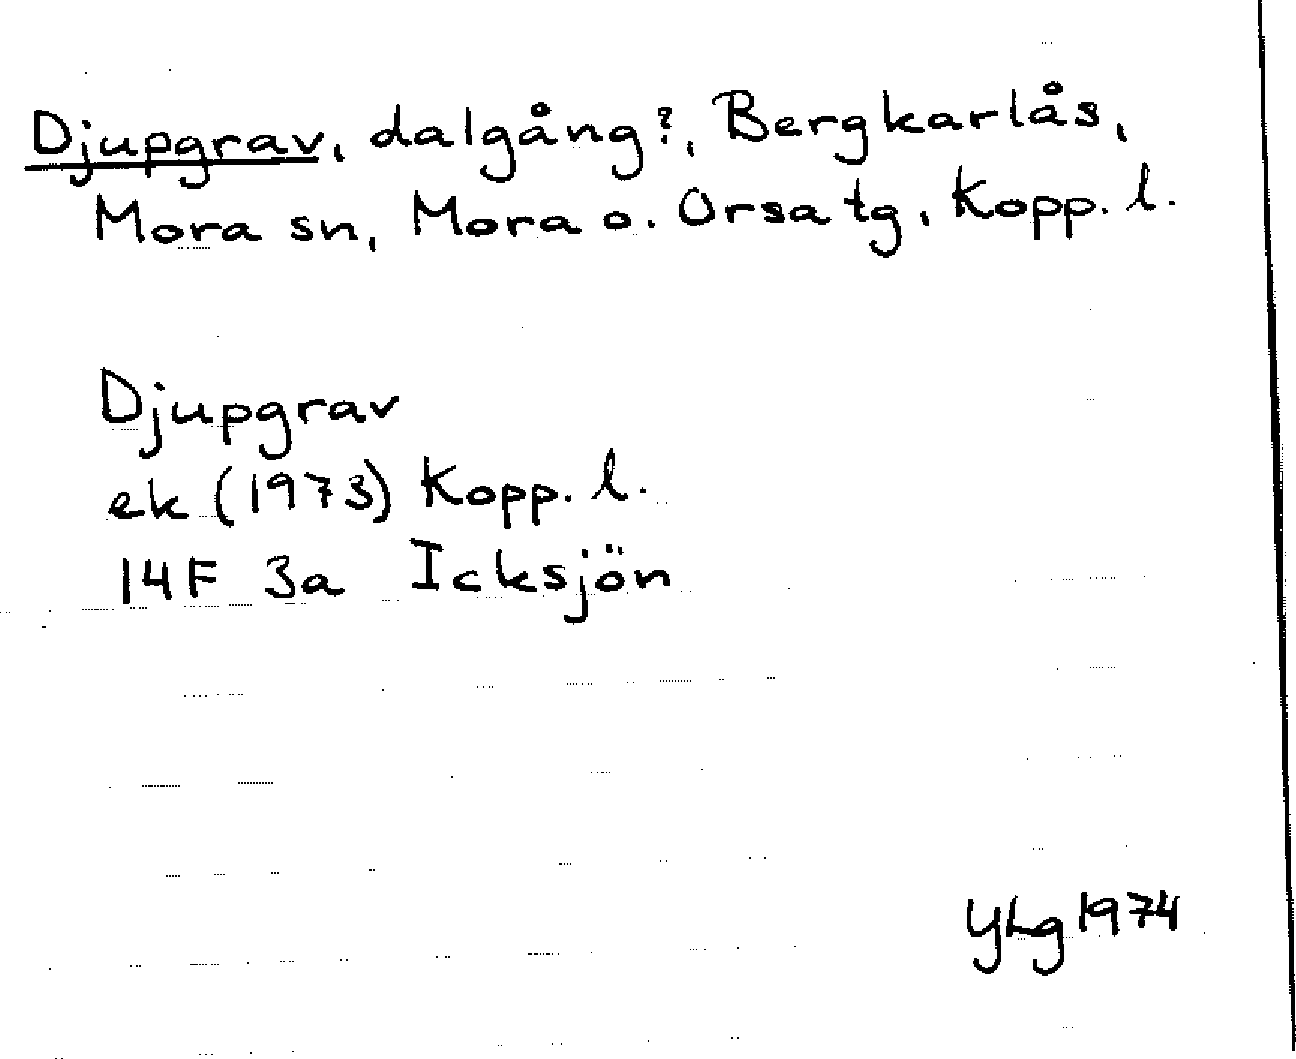 Djupgrav, dalgång?, Bergkarlås,
Mora sn, Mora o. Orsa tg, Kopp. l.
Djupgrav
ek (1973) Kopp. l.
14F 3a Icksjön
YLg 1974